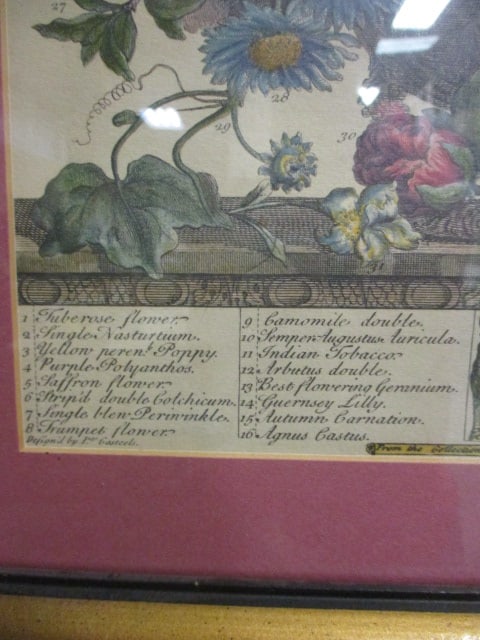 27
28
29
30
31
1 Tuberose flower.
2 Single Nasturtium.
3 Yellow peren.l Poppy.
4 Purple Polyanthos.
5 Saffron flower.
6 Strip'd double Colchicum.
7 Single blew Periwinkle.
8 Trumpet flower.
Design'd by P.r Casteels.
9 Camomile double.
10 Semper Augustus Auricula.
11 Indian Tobacco
12 Arbutus double.
13 Best flowering Geranium.
14 Guernsey Lilly.
15 Autumn Carnation.
16 Agnus Castus.
From the Collection